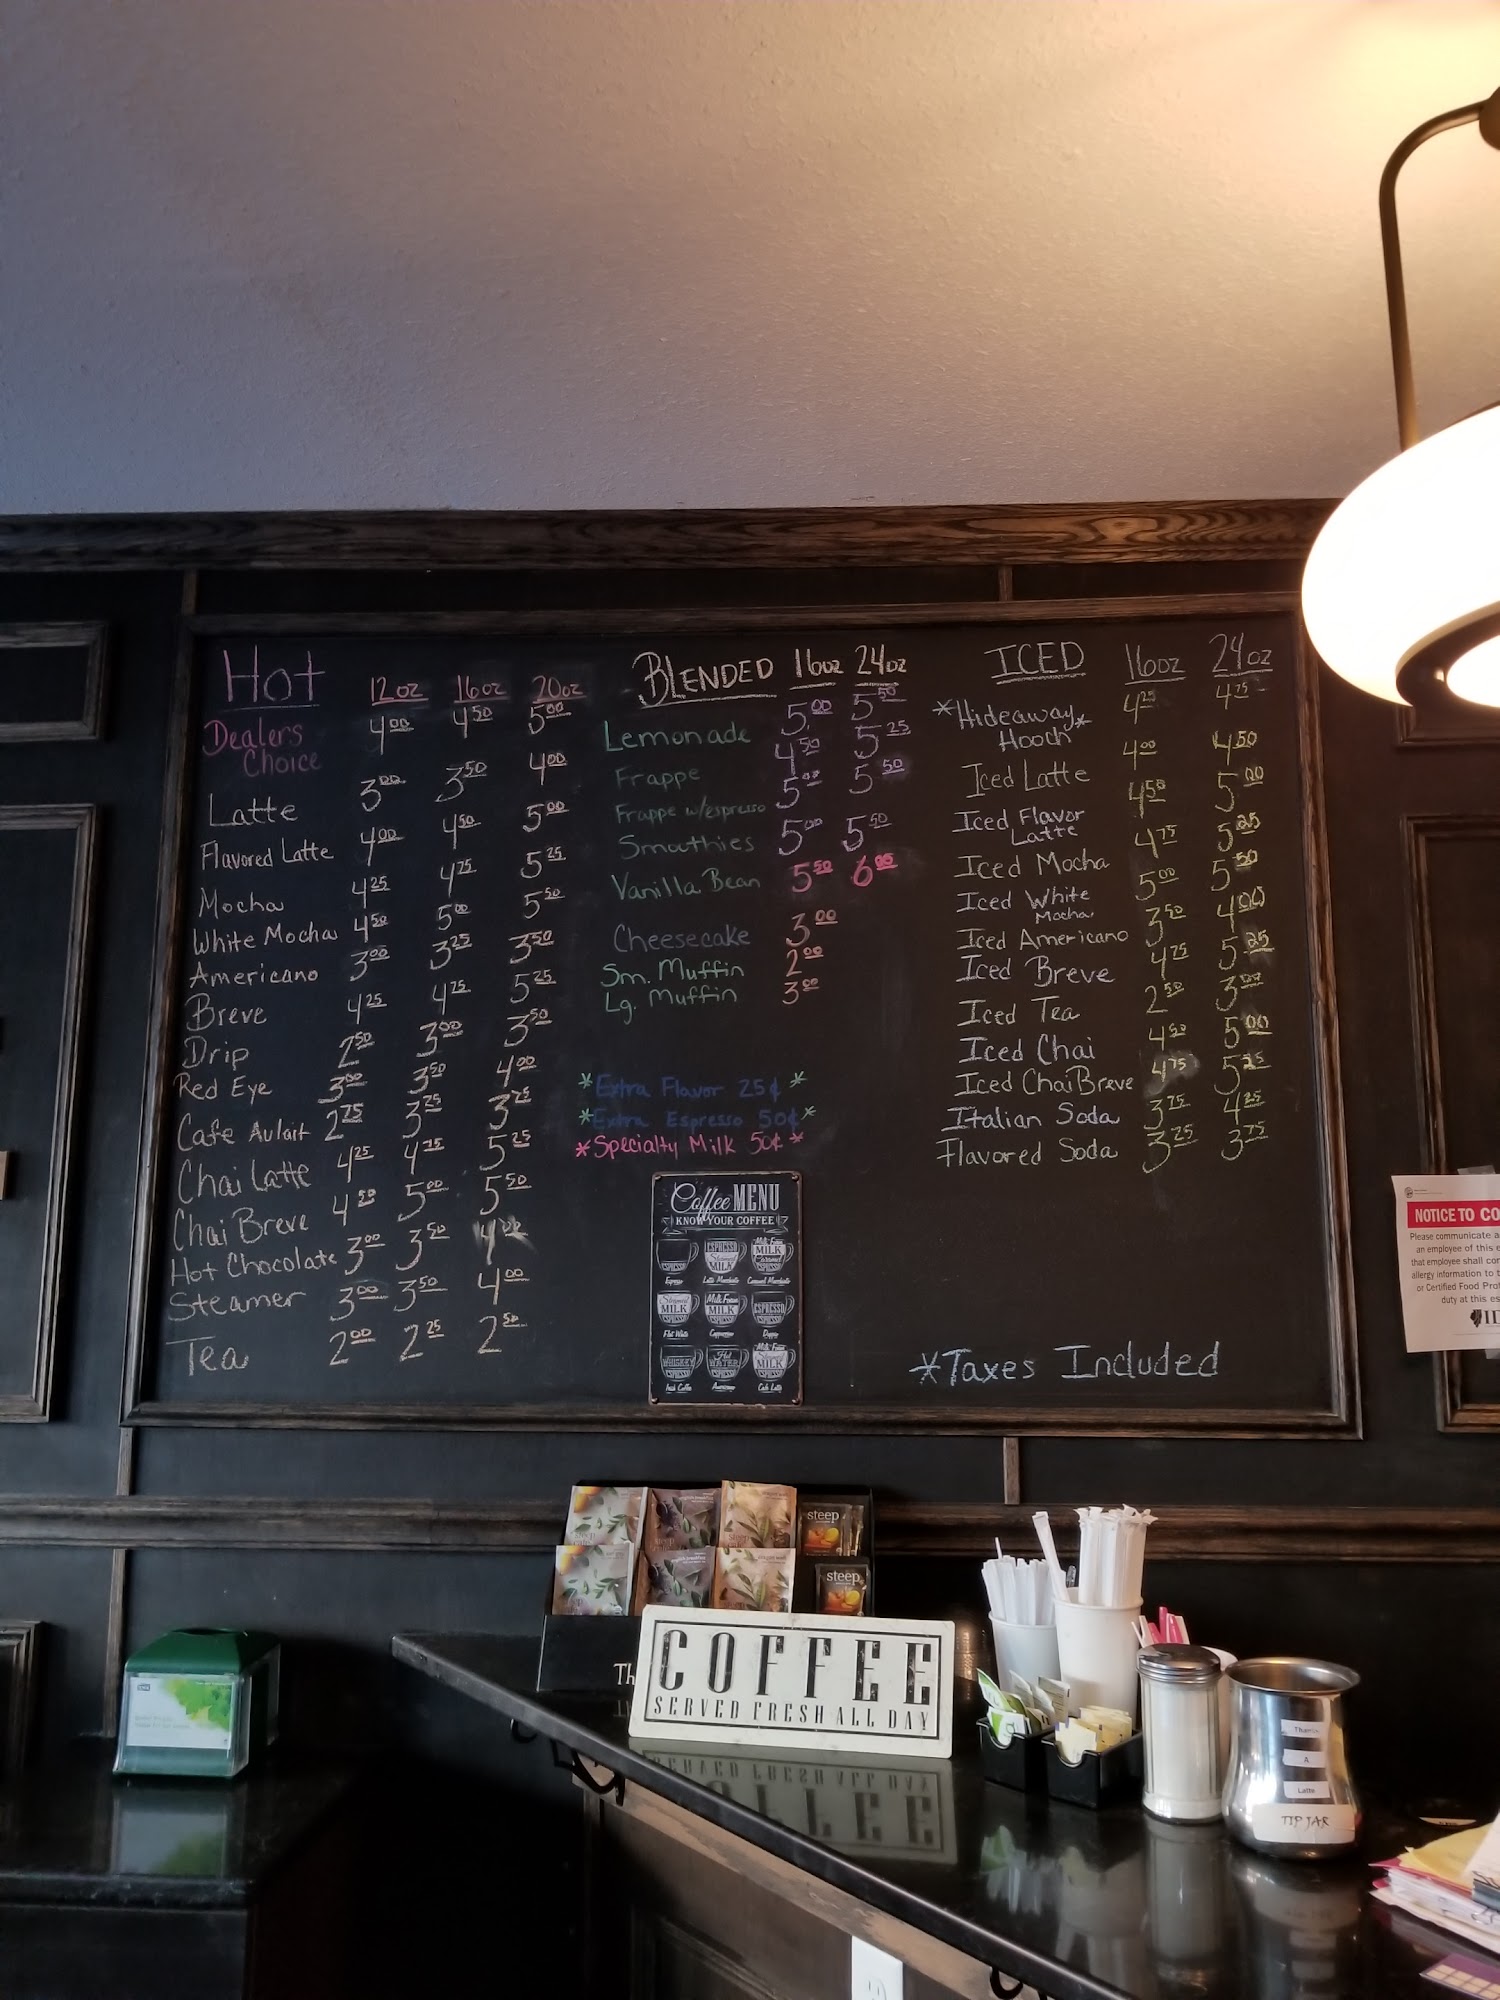 Hot 12oz 16oz 20oz
Dealers Choice 4.00 4.50 5.00
Latte 3.00 3.50 4.00
Flavored Latte 4.00 4.50 5.00
Mocha 4.25 4.75 5.25
White Mocha 4.50 5.00 5.50
Americano 3.00 3.25 3.50
Breve 4.25 4.75 5.25
Drip 2.50 3.00 3.50
Red Eye 3.00 3.50 4.00
Cafe Aulait 2.75 3.25 3.75
Chai Latte 4.25 4.75 5.25
Chai Breve 4.50 5.00 5.50
Hot Chocolate 3.00 3.50 4.00
Steamer 3.00 3.50 4.00
Tea 2.00 2.25 2.50
BLENDED 16oz 24oz
Lemonade 5.00 5.50
Frappe 4.50 5.25
Frappe w/espresso 5.00 5.50
Smoothies 5.00 5.50
Vanilla Bean 5.50 6.00
Cheesecake 3.00
Sm. Muffin 2.00
Lg. Muffin 3.00
*Extra Flavor 25¢ *
*Extra Espresso 50¢*
*Specialty Milk 50¢ *
ICED 16oz 24oz
*Hideaway Hooch* 4.25 4.75
Iced Latte 4.00 4.50
Iced Flavor Latte 4.50 5.00
Iced Mocha 4.75 5.25
Iced White Mocha 5.00 5.50
Iced Americano 3.50 4.00
Iced Breve 4.75 5.25
Iced Tea 2.50 3.00
Iced Chai 4.50 5.00
Iced Chai Breve 4.75 5.25
Italian Soda 3.75 4.25
Flavored Soda 3.25 3.75
*Taxes Included
Coffee MENU
KNOW YOUR COFFEE
NOTICE TO CO
Please communicate a
an employee of this e
that employee shall con
allergy information to t
or Certified Food Prot
duty at this es
steep
steep
COFFEE
SERVED FRESH ALL DAY
A
Latte
TIP JAR